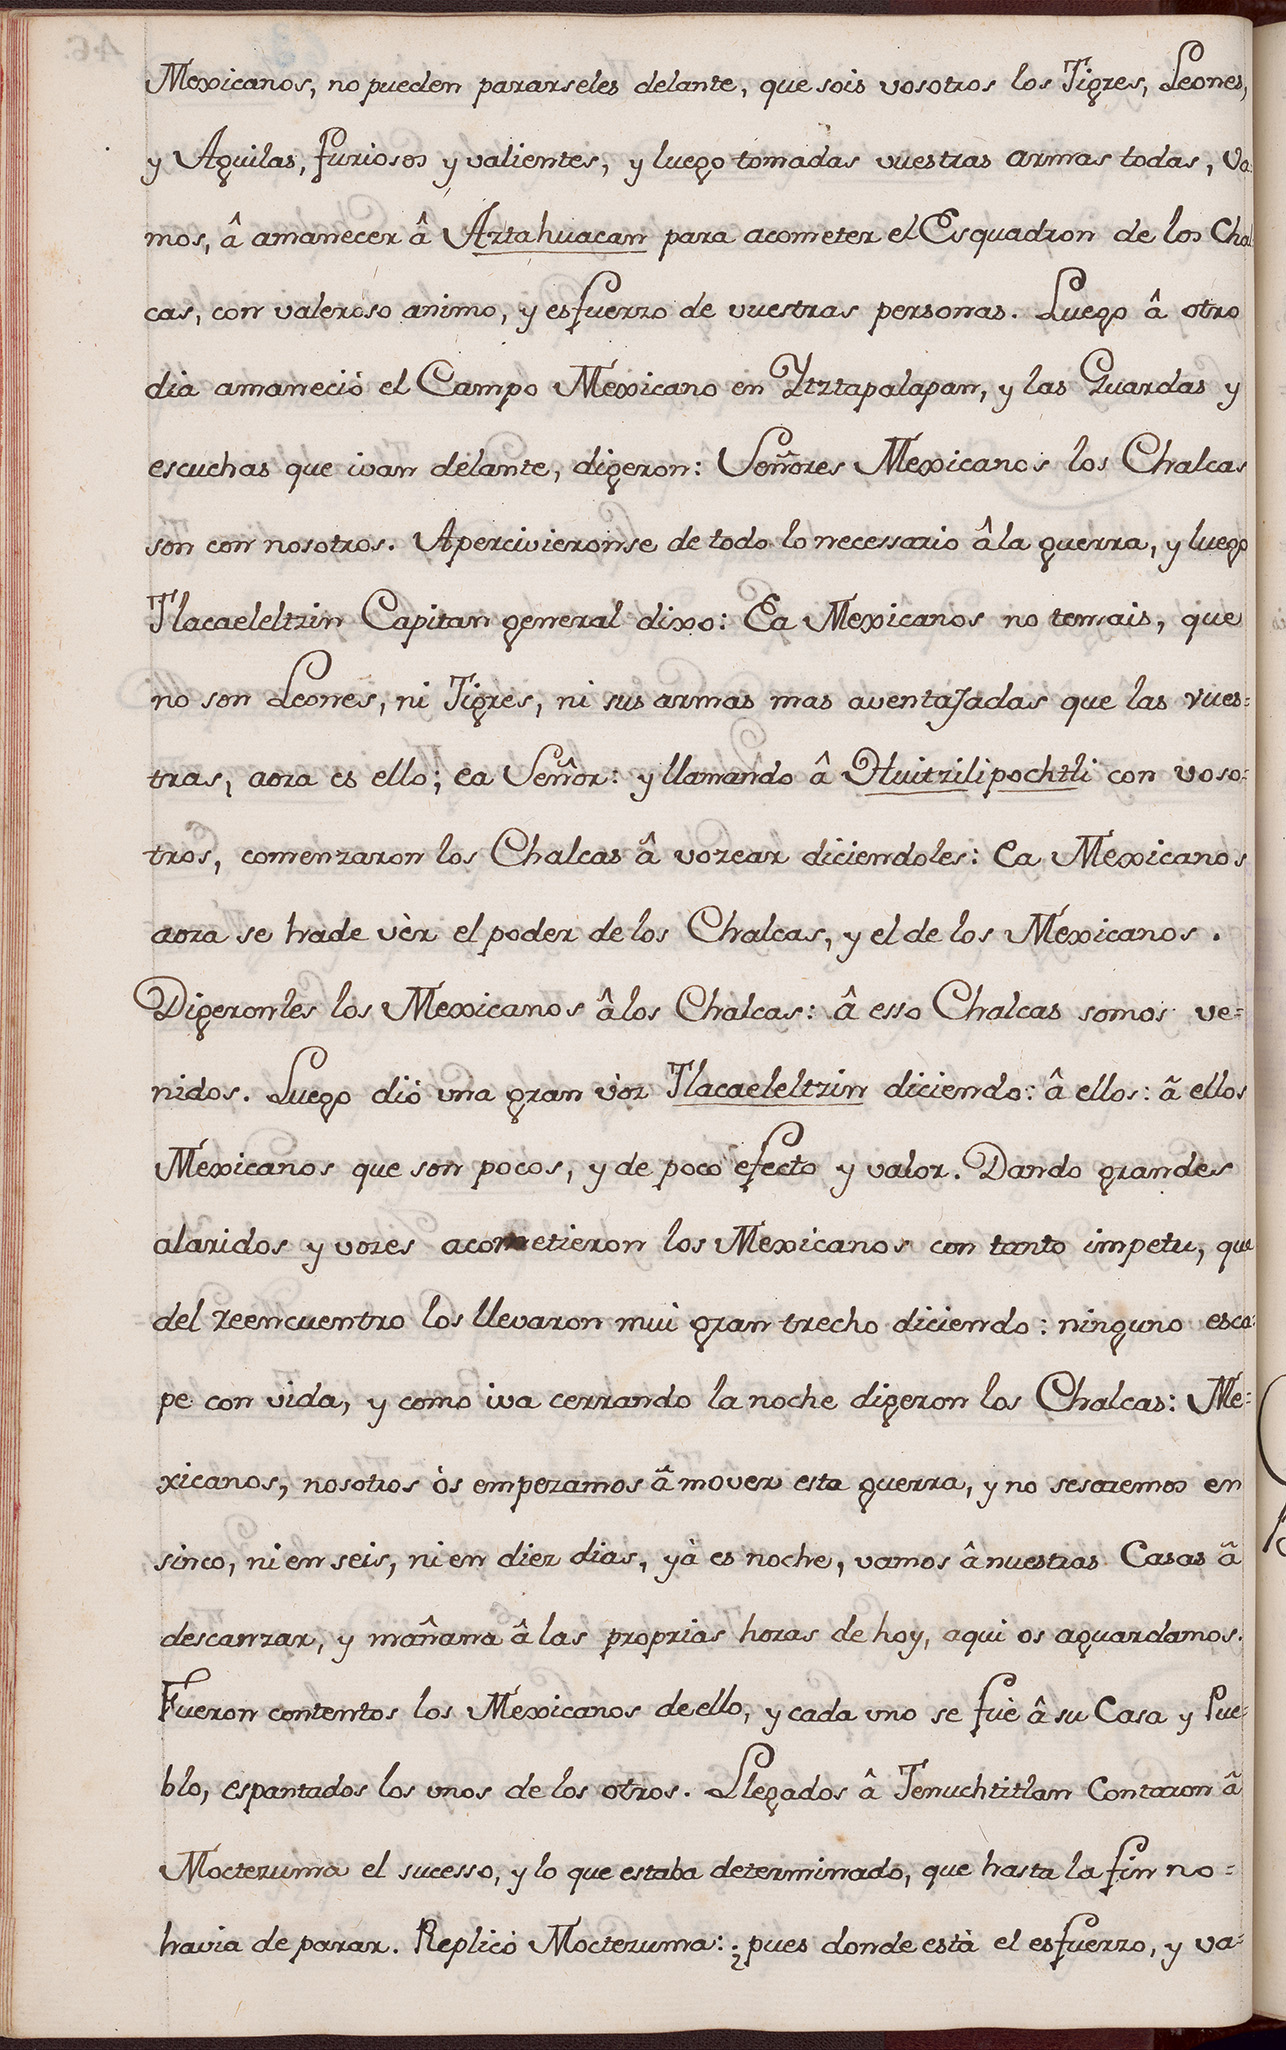 Mexicanos, no pueden pararseles delante, que sois vosotros los Tigres, Leones,
y Aguilas, furiosos y valientes, y luego tomadas vuestras armas todas, va-
mos, â amanecer â Aztahuacan para acometer el Esquadron de los Chal
cas, con valeroso animo, y esfuerzo de vuestras personas. Luego â otro
dia amaneció el Campo Mexicano en Ytztapalapan, y las Guardas y
escuchas que ivan delante, digeron: Señores Mexicanos los Chalcas
son con nosotros. Apercivieronse de todo lo necessario â la guerra, y luego
Tlacaeleltzin Capitan general dixo: Ea Mexicanos no temais, que
no son Leones, ni Tigres, ni sus armas mas aventajadas que las vues=
tras, aora es ello; ea Señor: y llamando â Huitzilipochtli con voso=
tros, comenzaron los Chalcas â vozear diciendoles: Ea Mexicanos
aora se hade vèr el poder de los Chalcas, y el de los Mexicanos.
Digeronles los Mexicanos â los Chalcas: â esso Chalcas somos ve=
nidos. Luego dió una gran vòz Tlacaeleltzin diciendo: â ellos: ã ellos
Mexicanos que son pocos, y de poco efecto y valor. Dando grandes
alaridos y vozes acometieron los Mexicanos con tanto impetu, que
del reencuentro los llevaron mui gran trecho diciendo: ninguno esca=
pe con vida, y como iva cerrando la noche digeron los Chalcas: Me=
xicanos, nosotros òs empezamos ã mover esta guerra, y no sesaremos en
sinco, ni en seis, ni en diez dias, yà es noche, vamos â nuestras Casas ã
descanzar, y mañana â las proprias horas de hoy, aqui os aguardamos.
Fueron contentos los Mexicanos de ello, y cada uno se fuè â su Casa y Pue=
blo, espantados los unos de los otros. Llegados â Tenuchtitlan Contaron ã
Moctezuma el sucesso, y lo que estaba determinado, que hasta la fin no=
havia de parar. Replicò Moctezuma: ¿pues donde està el esfuerzo, y va=